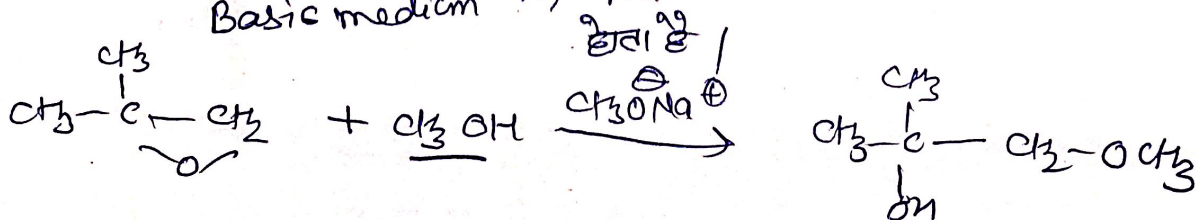 Basic medium
होता है
CH3
CH3-C-CH2 + CH3OH CH3O⊖Na⊕ → CH3-C-CH2-OCH3
O
CH3
OH